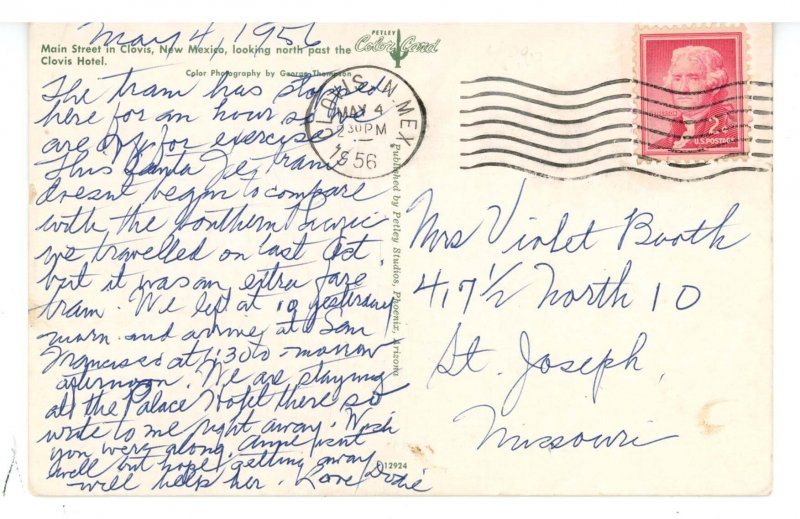 May 4, 1956
Main Street in Clovis, New Mexico, looking north past the
Clovis Hotel.
Color Photography by George Thompson
PETLEY
Color Card
The train has stopped
here for an hour so we
are off for exercise
This Santa Fe train
doesnt began to compare
with the Southern Scenic
we travelled on last Oct
but it was an extra fare
train. We left at 10 yesterday
morn. and arrive at San
Francisco at 1:30 to-morrow
afternoon. We are staying
at the Palace Hotel there so
write to me right away. Wish
you were along. Anne isn't
well but hope getting away
will help her. Love Dodie
12924
published by Petley Studios, Phoenix, Arizona
CLOVIS N MEX.
MAY 4
30 PM
1956
2¢
U.S. POSTAGE
Mrs Violet Booth
417½ North 10
St. Joseph,
Missouri